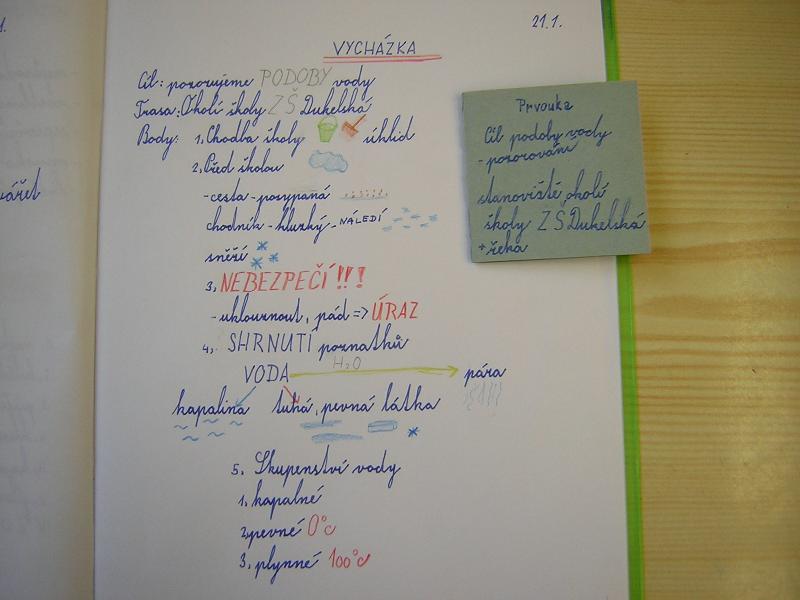 21.1.
VYCHÁZKA
Cíl: pozorujeme PODOBY vody
Trasa: Okolí školy ZŠ Dukelská
Body: 1. Chodba školy úklid
2. Před školou
- cesta - posypaná
chodník - kluzký - NÁLEDÍ
sněží
3. NEBEZPEČÍ!!!
- uklouznout, pád => ÚRAZ
4. SHRNUTÍ poznatků
H2O
VODA pára
kapalina tuhá, pevná látka
5. Skupenství vody
1. kapalné
2. pevné 0°C
3. plynné 100°C
Prvouka
Cíl podoby vody
- pozorování
stanoviště okolí
školy ZŠ Dukelská
+ řeka